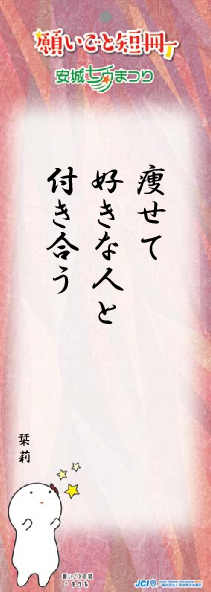 願いごと短冊
安城七夕まつり
痩せて
好きな人と
付き合う
栞莉
JCI